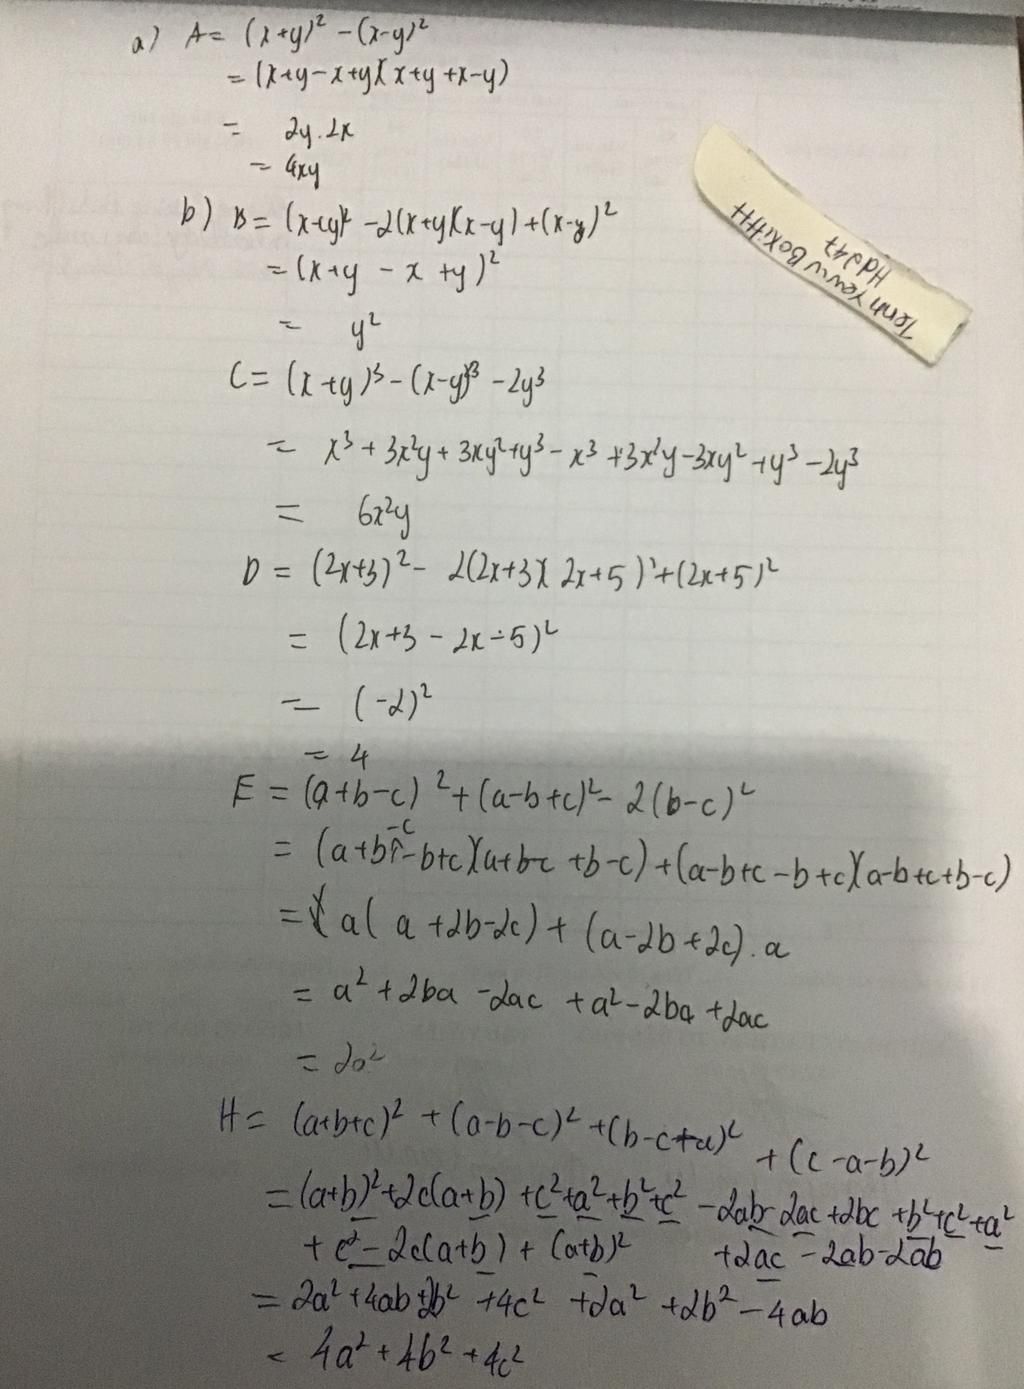 a) A= (x+y)² -(x-y)²
= (x+y-x+y)(x+y+x-y)
= 2y.2x
= 4xy
b) B= (x+y)² -2(x+y)(x-y)+(x-y)²
= (x+y - x +y)²
= y²
C= (x+y)³-(x-y)³ -2y³
= x³+3x²y+3xy²+y³-x³+3x²y-3xy²+y³-2y³
= 6x²y
D = (2x+3)²- 2(2x+3)(2x+5)+(2x+5)²
= (2x+3 - 2x-5)²
= (-2)²
= 4
E = (a+b-c)²+(a-b+c)²- 2(b-c)²
= (a+b-c-b+c)(a+b-c+b-c)+(a-b+c-b+c)(a-b+c+b-c)
= a(a+2b-2c)+(a-2b+2c).a
= a²+2ba-2ac+a²-2ba+2ac
= 2a²
H= (a+b+c)²+(a-b-c)²+(b-c+a)²+(c-a-b)²
= (a+b)²+2c(a+b)+c²+a²+b²+c²-2ab-2ac+2bc+b²+c²+a²
+c²-2c(a+b)+(a+b)² +2ac-2ab-2ab
= 2a²+4ab+2b²+4c²+2a²+2b²-4ab
= 4a²+4b²+4c²
Hdj47